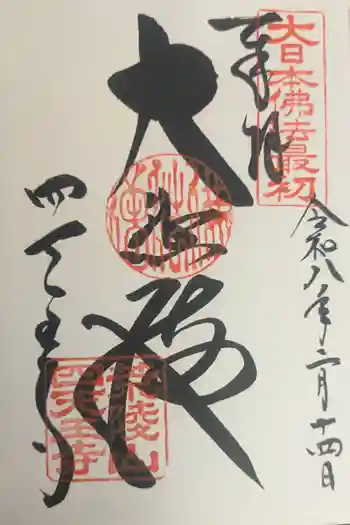 奉拝
大日本佛法最初
令和八年二月十四日
大悲殿
四天王寺
荒陵山
四天王寺